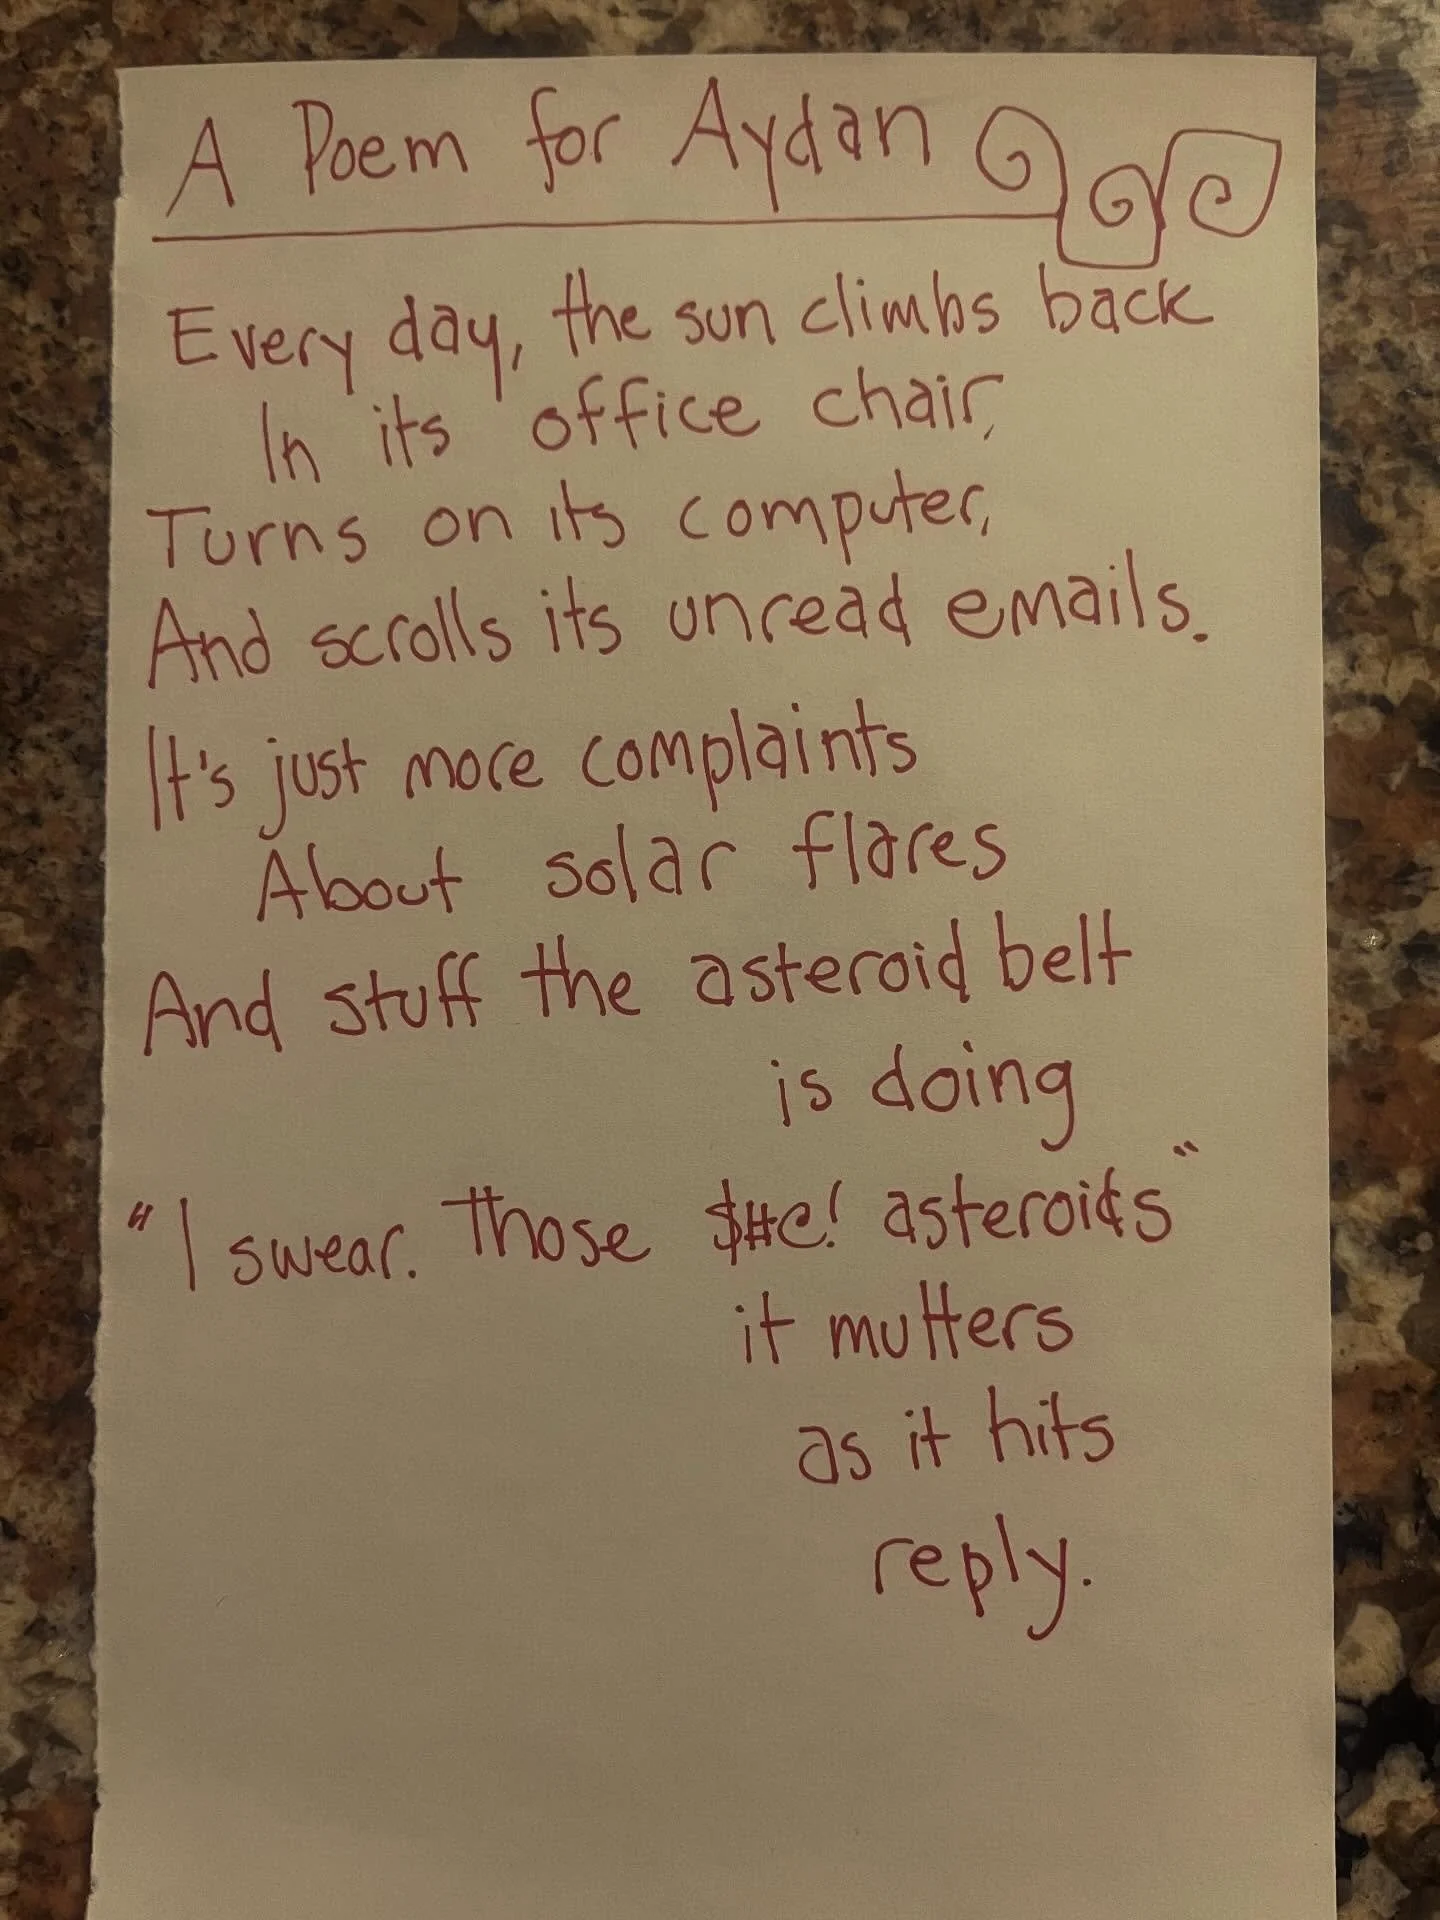 A Poem for Aydan
Every day, the sun climbs back
In its office chair,
Turns on its computer,
And scrolls its unread emails.
It's just more complaints
About solar flares
And stuff the asteroid belt
is doing
"I swear. Those $#@! asteroids"
it mutters
as it hits
reply.